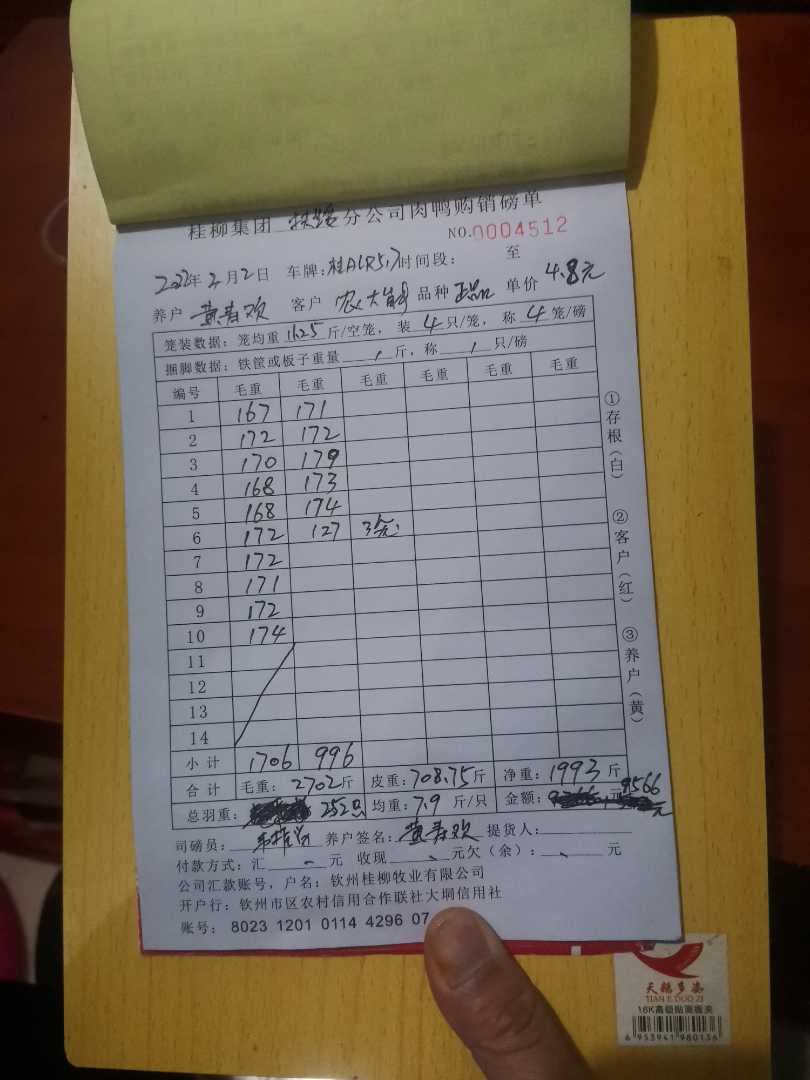 桂柳集团 扶绥 分公司肉鸭购销磅单
NO.0004512
2022年2月2日 车牌: 时间段: 至
养户 黄寿欢 客户 农大 品种 正品 单价 4.8元
笼装数据: 笼均重 11.25 斤/空笼, 装 4 只/笼, 称 4 笼/磅
捆脚数据: 铁筐或板子重量 斤, 称 只/磅
编号 毛重 毛重 毛重 毛重 毛重 毛重
1 167 171
2 172 172
3 170 179
4 168 173
5 168 174
6 172 127 3笼
7 172
8 171
9 172
10 174
11
12
13
14
小计 1706 996
合计 毛重: 2702斤 皮重: 708.75斤 净重: 1993斤
总羽重: 252只 均重: 7.9 斤/只 金额: 9566元
司磅员: 养户签名: 黄寿欢 提货人:
付款方式: 汇 元 收现 元欠(余): 元
公司汇款账号, 户名: 钦州桂柳牧业有限公司
开户行: 钦州市区农村信用合作联社大垌信用社
账号: 8023 1201 0114 4296 07
①存根(白)
②客户(红)
③养户(黄)
天鹅多姿
TIAN E DUO ZI
16K高级贴面板夹
6 953941 980136